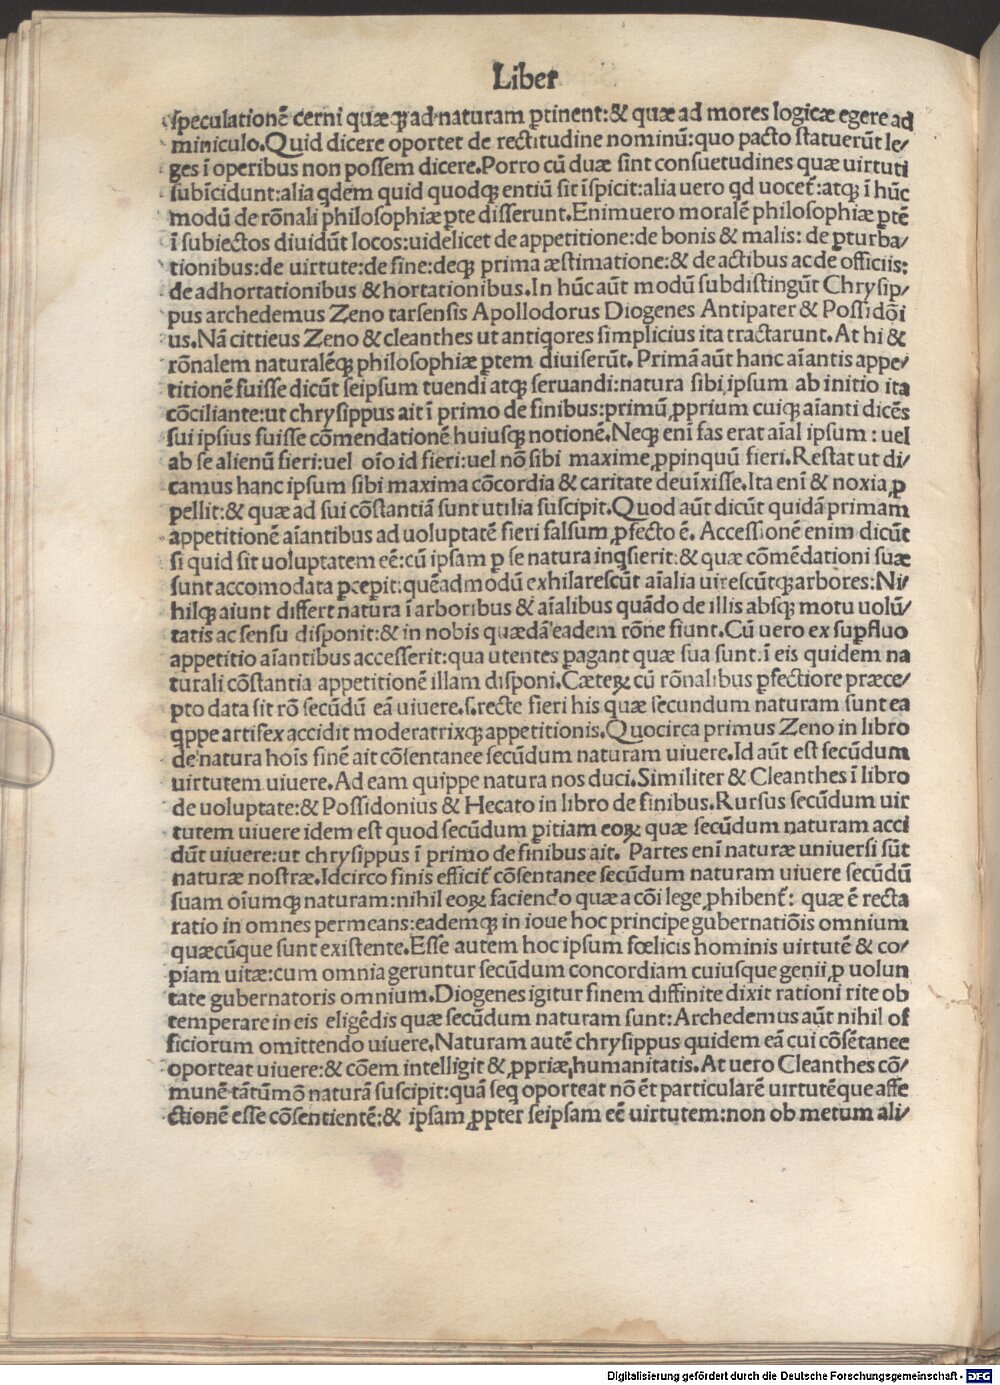 Liber
speculationẽ cerni quæꝗ ad naturam ꝑtinent:& quæ ad mores logicæ egere ad
miniculo.Quid dicere oportet de rectitudine nominũ:quo pacto statuerũt le/
ges ĩ operibus non possem dicere.Porro cũ duæ sint consuetudines quæ uirtuti
subĩcidunt:alia qdem quid quodꝗ entiũ sit ĩspicit:alia uero qd uocet̃:atꝗ ĩ hũc
modũ de rõnali philosophiæ ꝑte disserunt.Enimuero moralẽ philosophiæ ꝑtẽ
ĩ subiectos diuidũt locos:uidelicet de appetitione:de bonis & malis: de ꝑturba/
tionibus:de uirtute:de fine:deꝗ prima æstimatione:& de actibus ac de officiis:
de adhortationibus & hortationibus.In hũc aũt modũ subdistingũt Chrysip/
pus archedemus Zeno tarsensis Apollodorus Diogenes Antipater & Possidõi
us.Nã cittieus Zeno & cleanthes ut antiqores simplicius ita tractarunt.At hi &
rõnalem naturalẽꝗ philosophiæ ꝑtem diuiserũt. Primã aũt hanc aĩantis appe/
titionẽ fuisse dicũt seipsum tuendi atꝗ seruandi:natura sibi ipsum ab initio ita
cõciliante:ut chrysippus ait ĩ primo de finibus:primũ ꝓprium cuiꝗ aĩanti dicẽs
sui ipsius fuisse cõmendationẽ huiusꝗ notionẽ.Neꝗ enĩ fas erat aĩal ipsum : uel
ab se alienũ fieri:uel oĩo id fieri:uel nõ sibi maxime ꝓpinquũ fieri.Restat ut di/
camus hanc ipsum sibi maxima cõcordia & caritate deuĩxisse.Ita enĩ & noxia ꝓ
pellit:& quæ ad sui cõstantiã sunt utilia suscipit.Quod aũt dicũt quidã primam
appetitionẽ aĩantibus ad uoluptatẽ fieri falsum ꝓfecto ẽ. Accessionẽ enim dicũt
si quid sit uoluptatem eẽ:cũ ipsam ꝑ se natura inqsierit:& quæ cõmẽdationi suæ
sunt accomodata ꝑcepit:quẽadmodũ exhilarescũt aĩalia uirescũtꝗ arbores:Ni/
hilꝗ aiunt differt natura ĩ arboribus & aĩalibus quãdo de illis absꝗ motu uolũ/
tatis ac sensu disponit:& in nobis quædã eadem rõne fiunt.Cũ uero ex suꝑfluo
appetitio aĩantibus accesserit:qua utentes ꝑagant quæ sua sunt:ĩ eis quidem na
turali cõstantia appetitionẽ illam disponi.Cæteꝝ cũ rõnalibus ꝑfectiore præce/
pto data sit rõ secũdũ eã uiuere.s.recte fieri his quæ secundum naturam sunt ea
qppe artifex accidit moderatrixꝗ appetitionis.Quocirca primus Zeno in libro
de natura hoĩs finẽ ait cõsentanee secũdum naturam uiuere.Id aũt est secũdum
uirtutem uiuere.Ad eam quippe natura nos duci.Similiter & Cleanthes ĩ libro
de uoluptate:& Possidonius & Hecato in libro de finibus.Rursus secũdum uir
tutem uiuere idem est quod secũdum ꝑitiam eoꝝ quæ secũdum naturam acci
dũt uiuere:ut chrysippus ĩ primo de finibus ait. Partes enĩ naturæ uniuersi sũt
naturæ nostræ.Idcirco finis efficit̃ cõsentanee secũdum naturam uiuere secũdũ
suam oĩumꝗ naturam:nihil eoꝝ faciendo quæ a cõi lege ꝓhibent̃: quæ ẽ recta
ratio in omnes permeans:eademꝗ in ioue hoc principe gubernatiõis omnium
quæcũque sunt existente.Esse autem hoc ipsum fœlicis hominis uirtutẽ & co/
piam uitæ:cum omnia geruntur secũdum concordiam cuiusque genii ꝓ uolun
tate gubernatoris omnium.Diogenes igitur finem diffinite dixit rationi rite ob
temperare in eis eligẽdis quæ secũdum naturam sunt:Archedemus aũt nihil of
ficiorum omittendo uiuere.Naturam autẽ chrysippus quidem eã cui cõsẽtanee
oporteat uiuere:& cõem intelligit & ꝓpriæ humanitatis.At uero Cleanthes cõ/
munẽ tãtũmõ naturã suscipit:quã seq oporteat nõ ẽt particularẽ uirtutẽque affe
ctionẽ esse cõsentientẽ:& ipsam ꝓpter seipsam eẽ uirtutem:non ob metum ali/
Digitalisierung gefördert durch die Deutsche Forschungsgemeinschaft - DFG